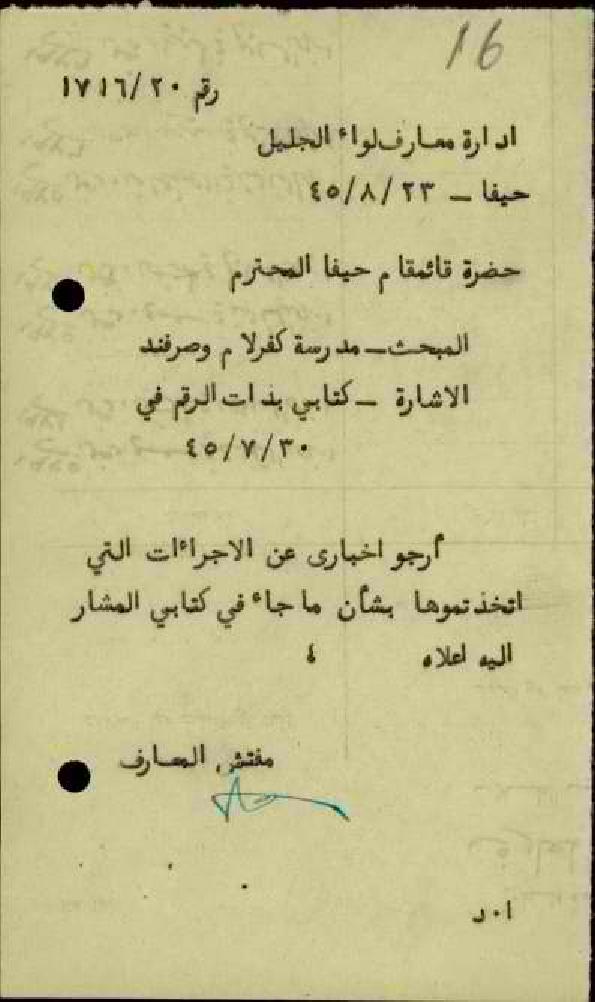 16
رقم ١٧١٦/٢٠
ادارة معارف لواء الجليل
حيفا - ٤٥/٨/٢٣
حضرة قائمقام حيفا المحترم
المبحث - مدرسة كفرلام وصرفند
الاشارة - كتابي بذات الرقم في
٤٥/٧/٣٠
أرجو اخبارى عن الاجراءات التي
اتخذتموها بشأن ما جاء في كتابي المشار
اليه اعلاه ؛
مفتش المعارف
ا٠د